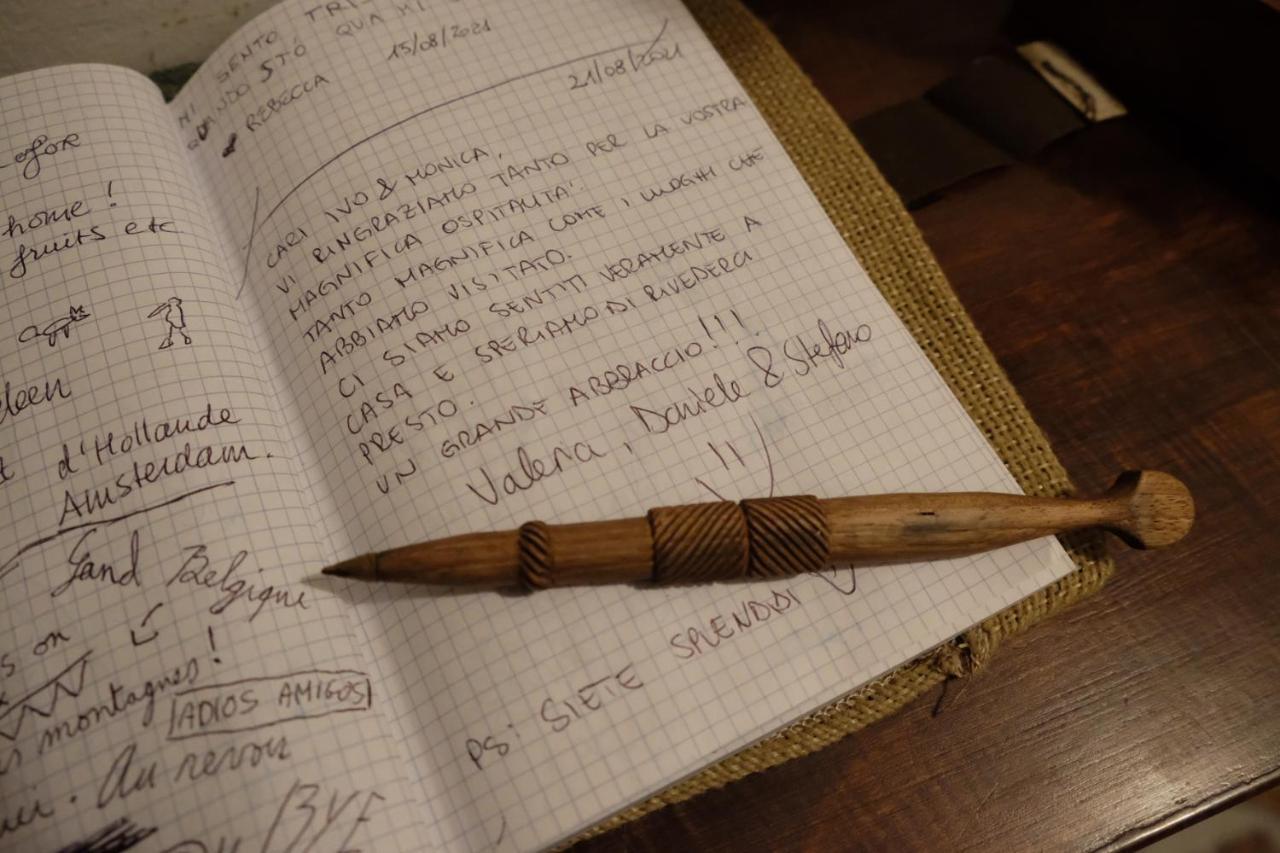 home !
fruits etc
d'Hollande
Amsterdam.
Gand Belgique
on
montagnes !
ADIOS AMIGOS
Au revoir
BYE
MI SENTO
QUANDO STÓ QUA MI
REBECCA
15/08/2021
21/08/2021
CARI IVO & MONICA,
VI RINGRAZIAMO TANTO PER LA VOSTRA
MAGNIFICA OSPITALITA'.
TANTO MAGNIFICA COME I LUOGHI CHE
ABBIAMO VISITATO.
CI SIAMO SENTITI VERAMENTE A
CASA E SPERIAMO DI RIVEDERCI
PRESTO.
UN GRANDE ABBRACCIO!!!
Valeria, Daniele & Stefano
PS: SIETE SPLENDIDI